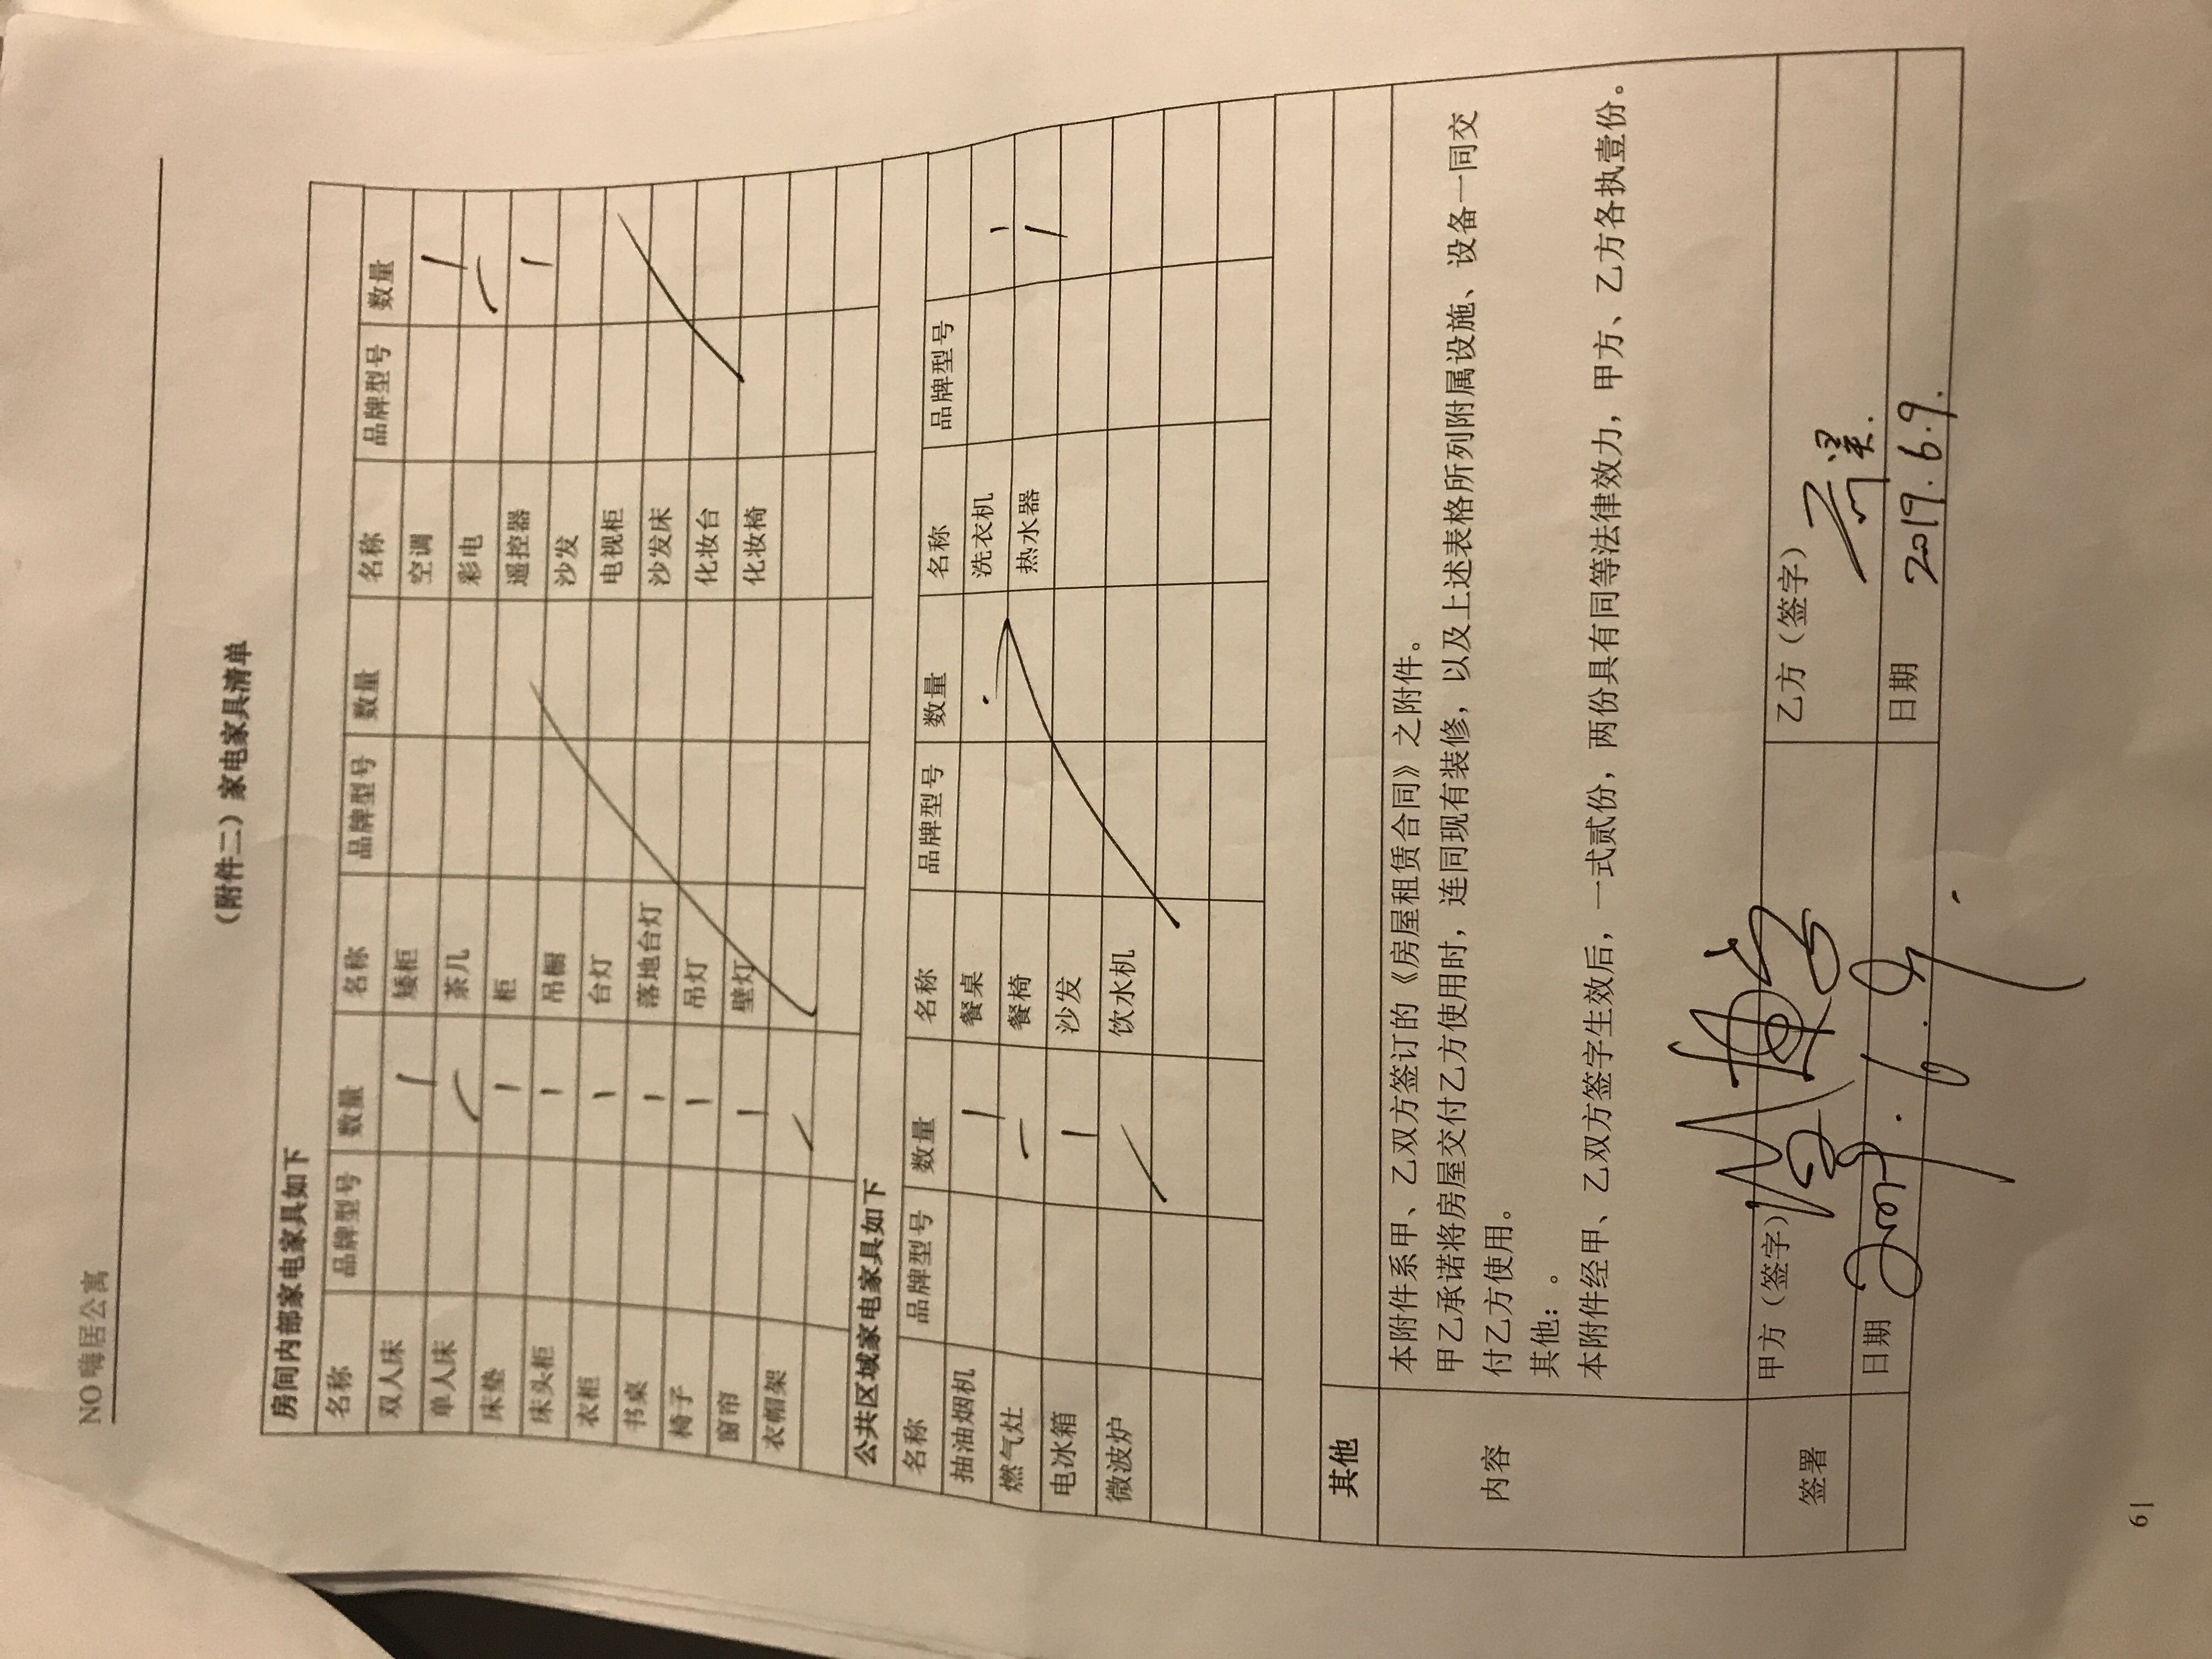 NO 嗨居公寓
（附件二）家电家具清单
房间内部家电家具如下
名称 品牌型号 数量 名称 品牌型号 数量 名称 品牌型号 数量
双人床 1 矮柜 空调 1
单人床 茶几 彩电
床垫 1 柜 遥控器 1
床头柜 1 吊橱 沙发
衣柜 1 台灯 电视柜
书桌 1 落地台灯 沙发床
椅子 1 吊灯 化妆台
窗帘 1 壁灯 化妆椅
衣帽架
公共区域家电家具如下
名称 品牌型号 数量 名称 品牌型号 数量 名称 品牌型号
抽油烟机 1 餐桌 洗衣机 1
燃气灶 餐椅 热水器 1
电冰箱 1 沙发
微波炉 饮水机
其他
内容
本附件系甲、乙双方签订的《房屋租赁合同》之附件。
甲乙承诺将房屋交付乙方使用时，连同现有装修，以及上述表格所列附属设施、设备一同交
付乙方使用。
其他：。
本附件经甲、乙双方签字生效后，一式贰份，两份具有同等法律效力，甲方、乙方各执壹份。
签署 甲方（签字） 乙方（签字）
日期 2019.6.9. 日期 2019.6.9.
6|